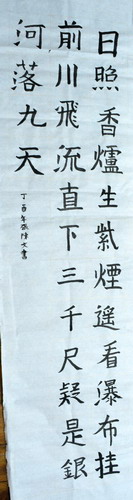 日照香爐生紫煙遙看瀑布挂
前川飛流直下三千尺疑是銀
河落九天
丁酉年張陸大書